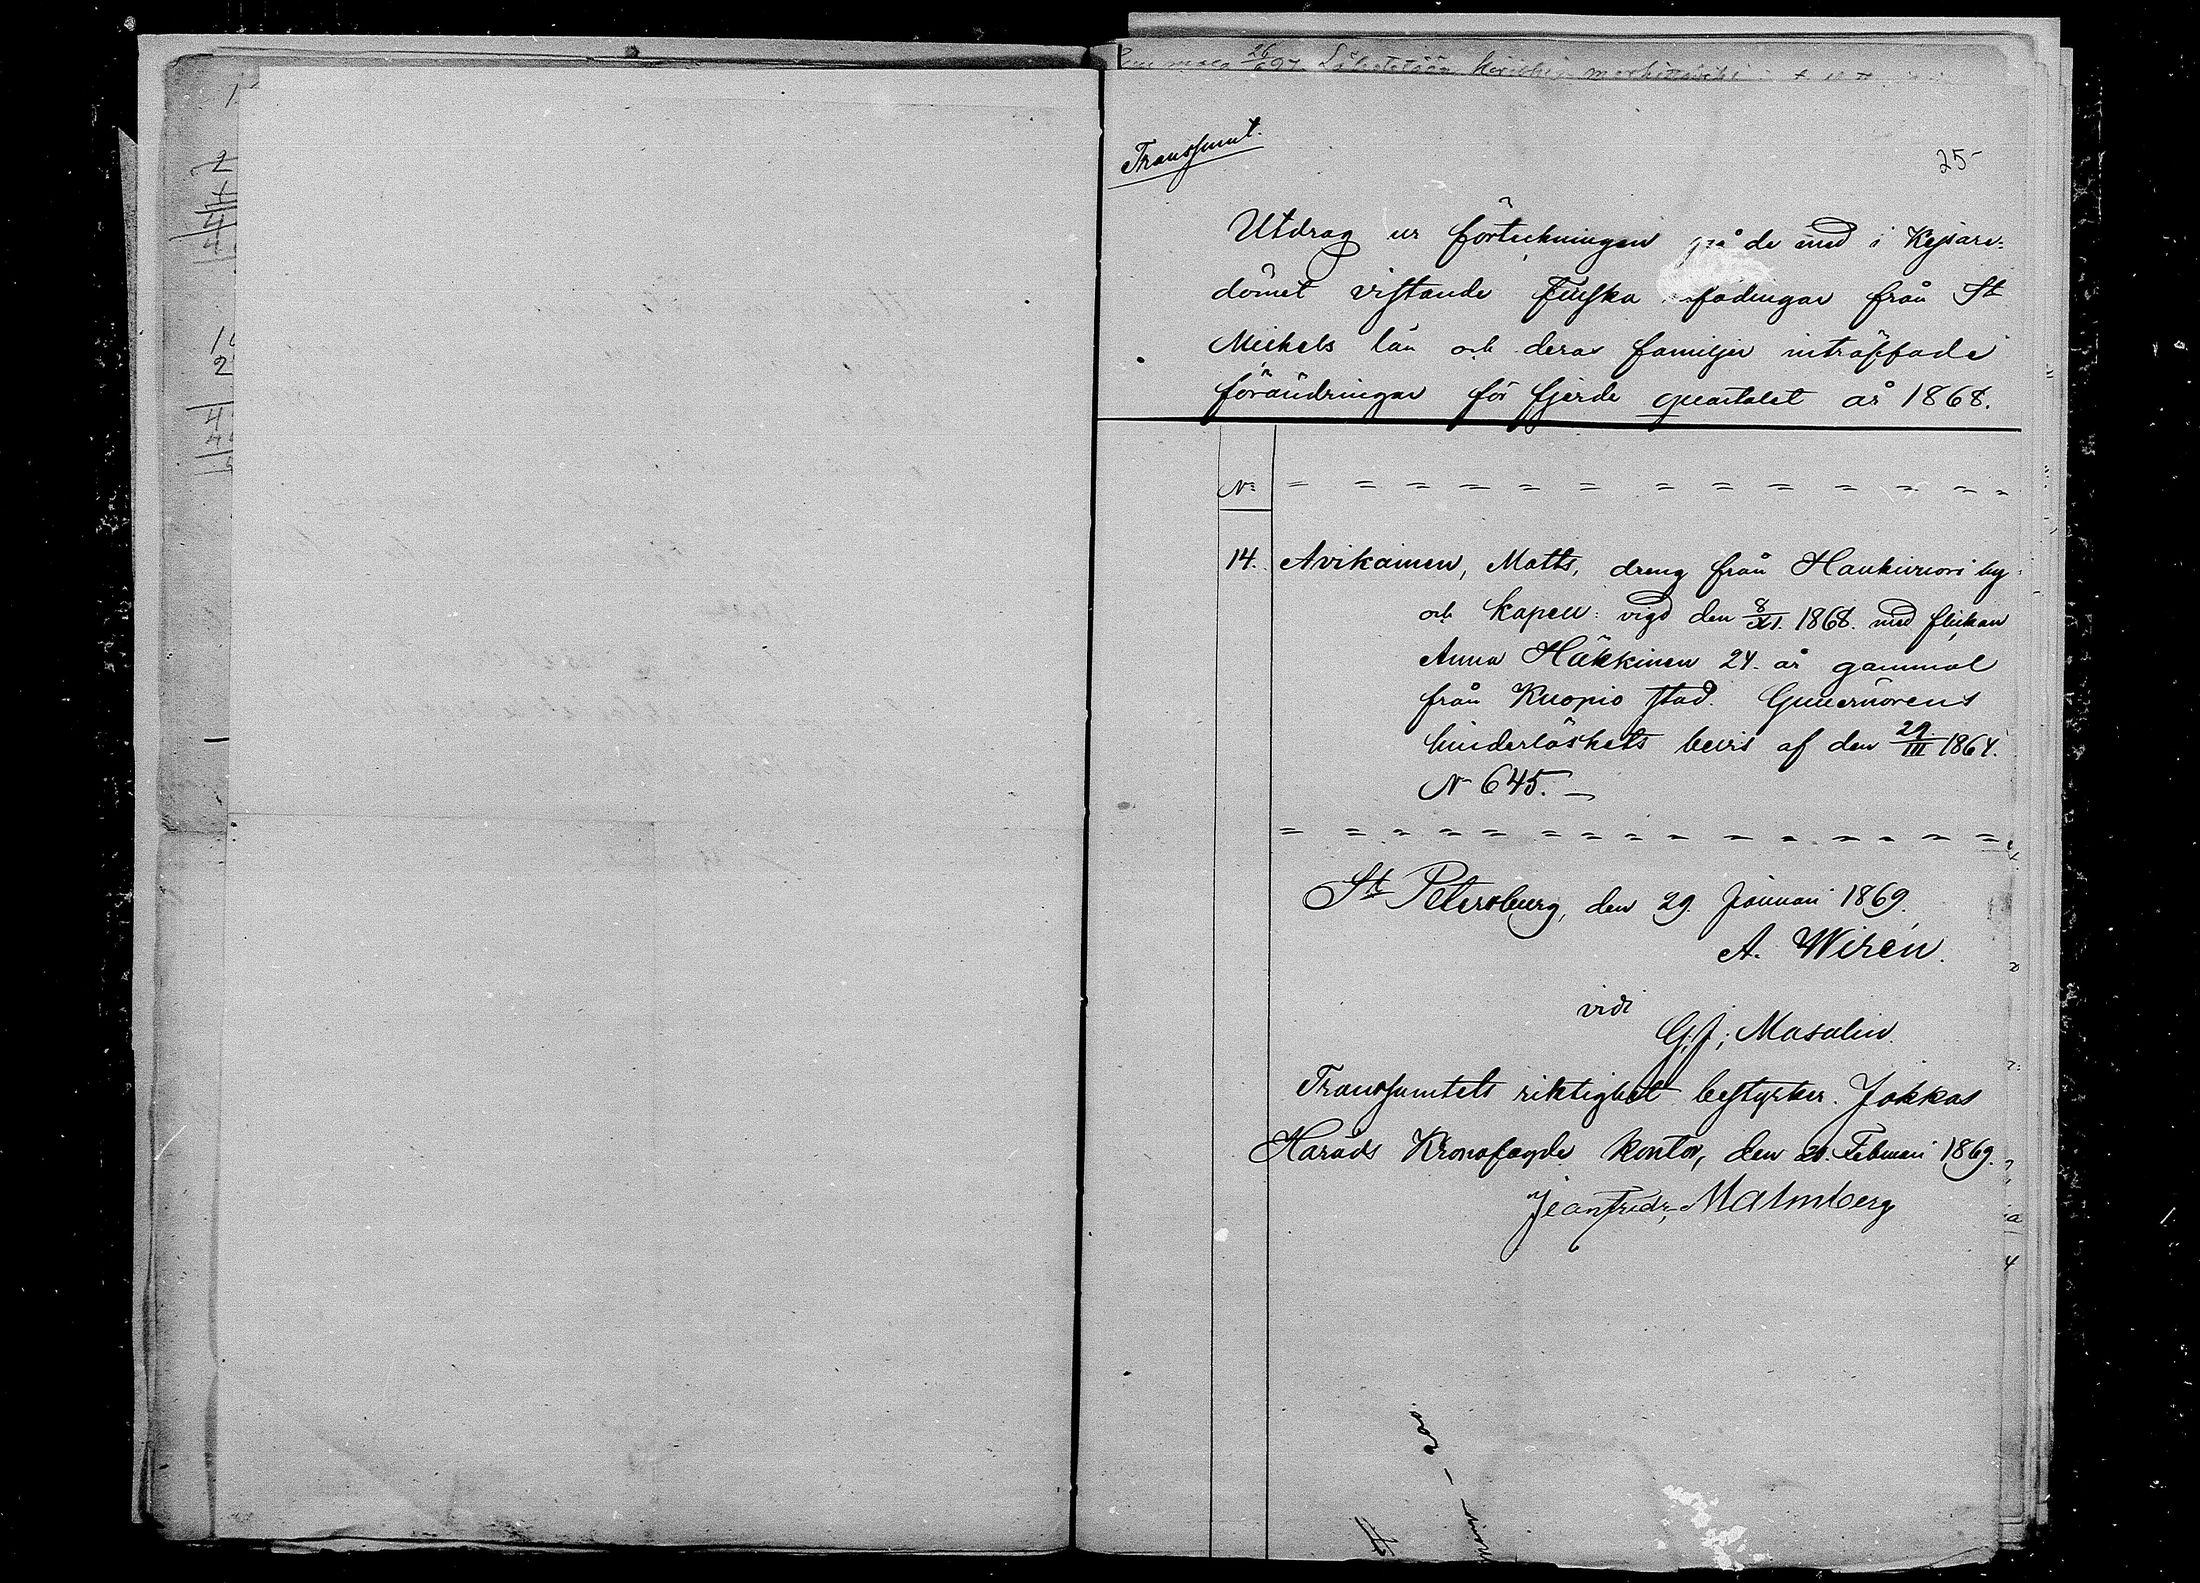 Transsumt.
25
Utdrag ur förteckningen på de med i Kejsare-
dömet vistande Finska födingar från St
Michels län och deras familjer inträffade
förändringar för fjerde quartalet år 1868.
No = = = = = = = = = = = = =
14. Avikainen, Matts, dreng från Haukivuori by
och kapell: vigd den 8/XI. 1868. med flickan
Anna Häkkinen 24. år gammal
från Kuopio stad. Guvernörens
hinderlöshets bevis af den 29/III 1864.
No 645. —
= = = = = = = = = = = = = = =
St Petersburg, den 29. Januari 1869.
A. Wirén.
vidi
G; J; Masalin.
Transsumtets riktighet bestyrker. Jokkas
Härads Kronofogde Kontor, den 20. Februari 1869.
Jean Fredr. Malmberg